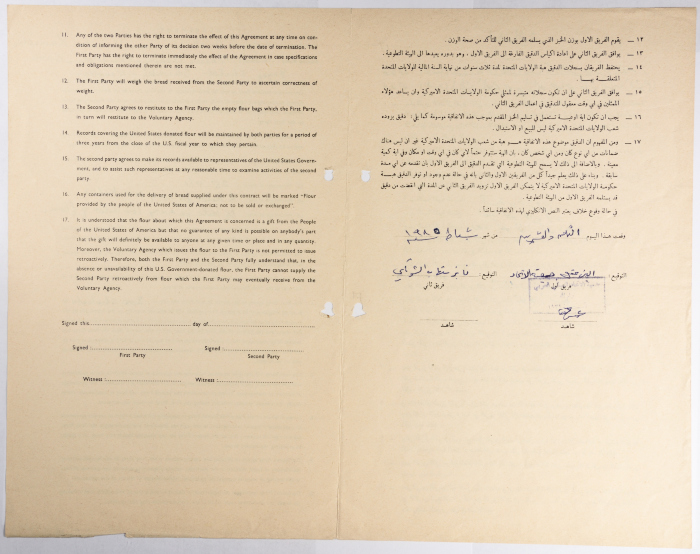 11. Any of the two Parties has the right to terminate the effect of this Agreement at any time on con-
dition of informing the other Party of its decision two weeks before the date of termination. The
First Party has the right to terminate immediately the effect of the Agreement in case specifications
and obligations mentioned therein are not met.
12. The First Party will weigh the bread received from the Second Party to ascertain correctness of
weight.
13. The Second Party agrees to restitute to the First Party the empty flour bags which the First Party,
in turn will restitute to the Voluntary Agency.
14. Records covering the United States donated flour will be maintained by both parties for a period of
three years from the close of the U.S. fiscal year to which they pertain.
15. The second party agrees to make its records available to representatives of the United States Govern-
ment, and to assist such representatives at any reasonable time to examine activities of the second
party.
16. Any containers used for the delivery of bread supplied under this contract will be marked "Flour
provided by the people of the United States of America, not to be sold or exchanged".
17. It is understood that the flour about which this Agreement is concerned is a gift from the People
of the United States of America but that no guarantee of any kind is possible on anybody's part
that the gift will definitely be available to anyone at any given time or place and in any quantity.
Moreover, the Voluntary Agency which issues the flour to the First Party is not permitted to issue
retroactively. Therefore, both the First Party and the Second Party fully understand that, in the
absence or unavailability of this U.S. Government-donated flour, the First Party cannot supply the
Second Party retroactively from flour which the First Party may eventually receive from the
Voluntary Agency.
Signed this day of
Signed : Signed :
First Party Second Party
Witness : Witness :
١٢ — يقوم الفريق الاول بوزن الخبز الذي يسلمه الفريق الثاني للتأكد من صحة الوزن .
١٣ — يوافق الفريق الثاني على اعادة اكياس الدقيق الفارغة الى الفريق الاول ، وهو بدوره يعيدها الى الهيئة التطوعية .
١٤ — يحتفظ الفريقان بسجلات الدقيق هبة الولايات المتحدة لمدة ثلاث سنوات من نهاية السنة المالية للولايات المتحدة
المتعلقة بها .
١٥ — يوافق الفريق الثاني على ان تكون سجلاته متيسرة لممثلي حكومة الولايات المتحدة الاميركية وان يساعد هؤلاء
الممثلين في اي وقت معقول للتدقيق في اعمال الفريق الثاني .
١٦ — يجب ان تكون اية اوعية تستعمل في تسليم الخبز المقدم بموجب هذه الاتفاقية موسومة كما يلي : دقيق يزوده
شعب الولايات المتحدة الاميركية ليس للبيع او الاستبدال .
١٧ — ومن المفهوم ان الدقيق موضوع هذه الاتفاقية هو هبة من شعب الولايات المتحدة الاميركية غير ان ليس هناك
ضمانات من اي نوع كان ومن اي شخص كان ، بان الهبة ستتوفر حتماً لأي كان في اي وقت او مكان وفي اية كمية
معينة . وبالاضافة الى ذلك لا يسمح للهيئة التطوعية التي تقدم الدقيق الى الفريق الاول بان تقدمه عن اي مدة
سابقة . وبناء على ذلك يعلم جيداً كل من الفريقين الاول والثاني بانه في حالة عدم وجود او توفر الدقيق هبة
حكومة الولايات المتحدة الاميركية لا يتمكن الفريق الاول تزويد الفريق الثاني عن المدة التي انقضت من دقيق
قد يستلمه الفريق الاول من الهيئة التطوعية .
في حالة وقوع خلاف يعتبر النص الانكليزي لهذه الاتفاقية سائداً .
وقعت هذا اليوم من شهر شباط ١٩٨٥
التوقيع : التوقيع :
فريق اول فريق ثاني
شاهد شاهد